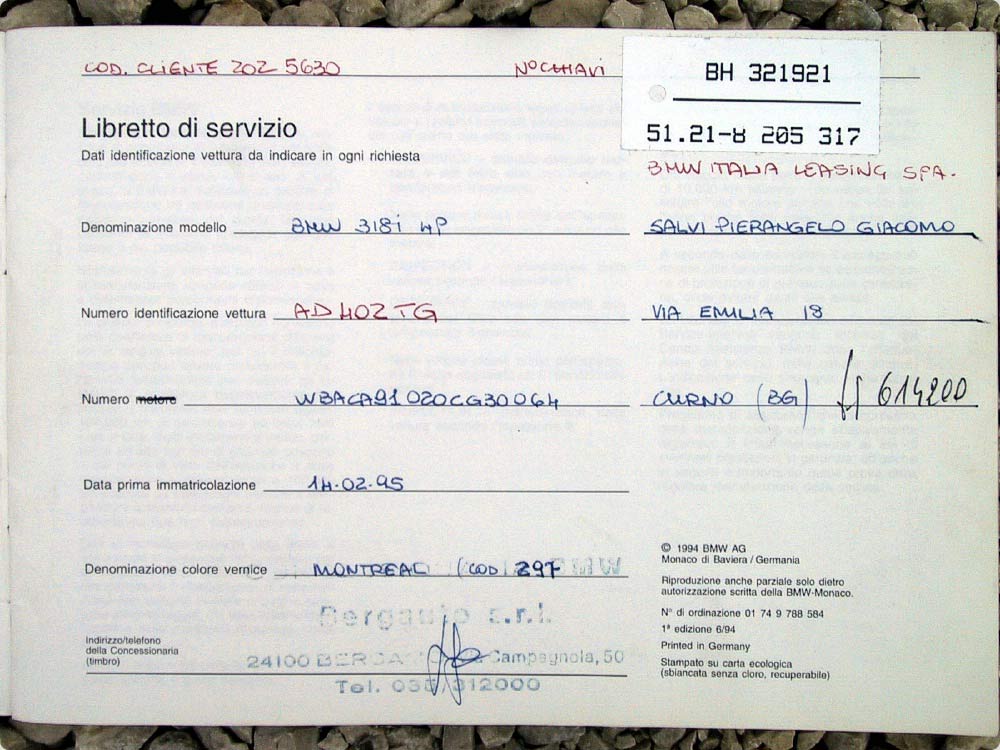 COD. CLIENTE 202 5630
N° CHIAVI
BH 321921
51.21-8 205 317
BMW ITALIA LEASING S.P.A.
Libretto di servizio
Dati identificazione vettura da indicare in ogni richiesta
Denominazione modello BMW 318i 4P
SALVI PIERANGELO GIACOMO
Numero identificazione vettura AD402TG
VIA EMILIA 18
Numero motore WBACA91020CG30064
CURNO (BG) 614200
Data prima immatricolazione 14.02.95
Denominazione colore vernice MONTREAL (COD 297
BMW
Bergauto s.r.l.
Indirizzo/telefono
della Concessionaria
(timbro)
24100 BERGAMO Via Campagnola, 50
Tel. 035/312000
© 1994 BMW AG
Monaco di Baviera / Germania
Riproduzione anche parziale solo dietro
autorizzazione scritta della BMW-Monaco.
N° di ordinazione 01 74 9 788 584
1ª edizione 6/94
Printed in Germany
Stampato su carta ecologica
(sbiancata senza cloro, recuperabile)